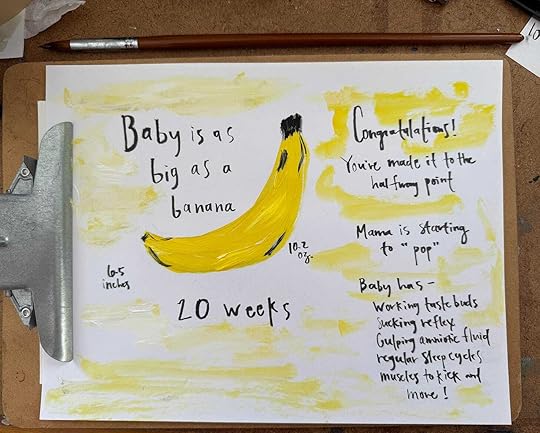 Baby is as
big as a
banana
6.5
inches
10.2
oz.
20 weeks
Congratulations!
You've made it to the
halfway point
Mama is starting
to "pop"
Baby has -
working taste buds
sucking reflex
Gulping amniotic fluid
regular sleep cycles
muscles to kick and
more!